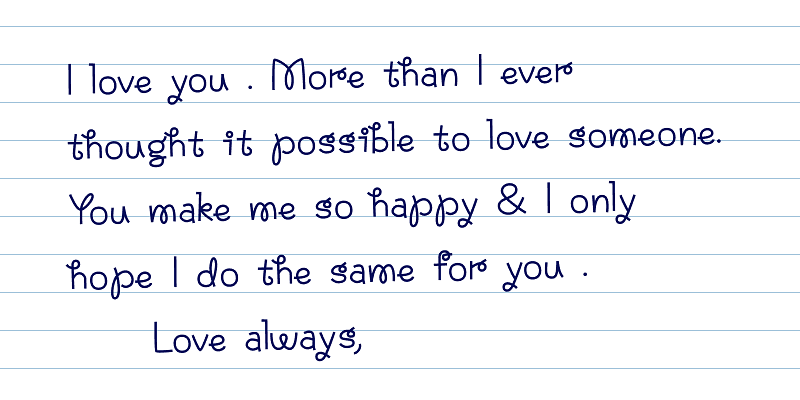 I love you . More than I ever
thought it possible to love someone.
You make me so happy & I only
hope I do the same for you .
Love always,